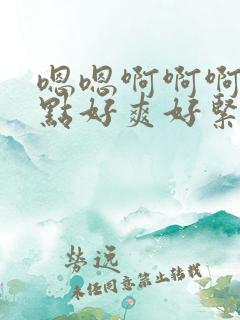 嗯嗯啊啊啊
點好爽好緊
勞远
未任同意禁止转载